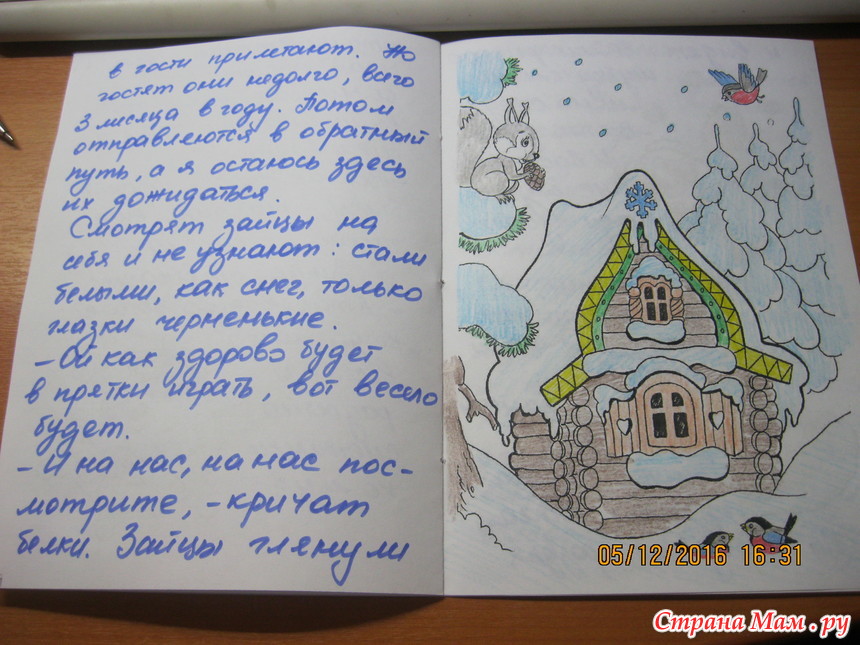 в гости прилетают. Но
гостят они недолго, всего
3 месяца в году. Потом
отправлеются в обратный
путь, а я остаюсь здесь
их дожидаться.
Смотрят зайцы на
себя и не узнают: стали
белыми, как снег, только
глазки черненькие.
- Ой как здорово будет
в прятки играть, вот весело
будет.
- И на нас, на нас пос-
мотрите, - кричат
белки. Зайцы глянули
05/12/2016 16:31
Страна Мам.ру